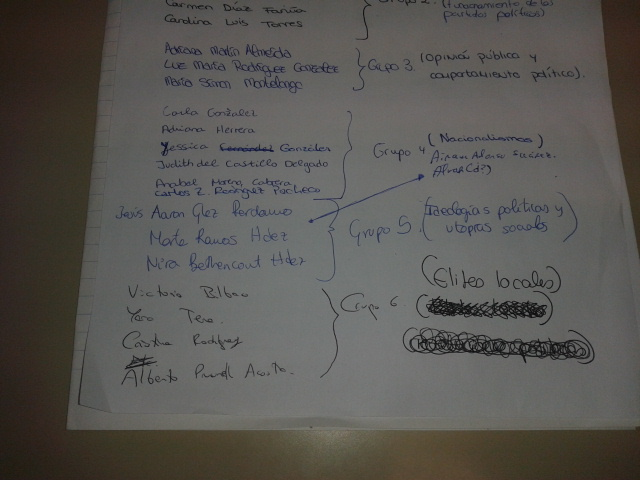 Carmen Díaz Fariña
Carolina Luis Torres
Grupo 2. (funcionamiento de los partidos políticos)
Adriana María Almeida
Luz María Rodríguez González
María Seron
Grupo 3. (Opinión pública y
comportamiento político).
Carla González
Adriana Herrera
Yessica González
Judith del Castillo Delgado
Anabel Moreno Cabrera
Carlos Z. Rodríguez Pacheco
Grupo 4 (Nacionalismos)
Alfonso Suárez.
Jesús Aaron Glez Perdomo
Marta Ramos Hdez
Nira Bethencourt Hdez
Grupo 5. (Ideologías políticas y
utopías sociales)
Victoria Bilbao
Yaro Tena.
Cristina Rodríguez
Alberto
Grupo 6.
(Elites locales)